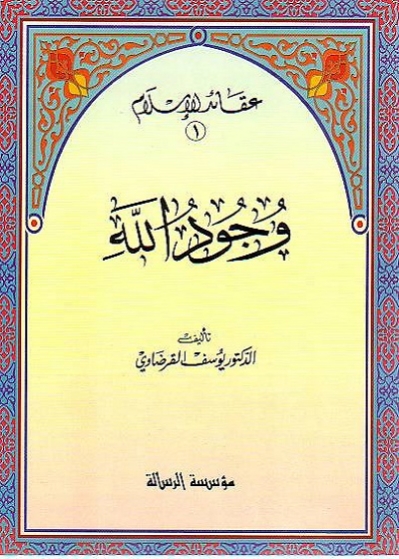 عقائد الإسلام
١
وُجُودُ اللهِ
تأليف
الدكتور يوسف القرضاوي
مؤسسة الرسالة